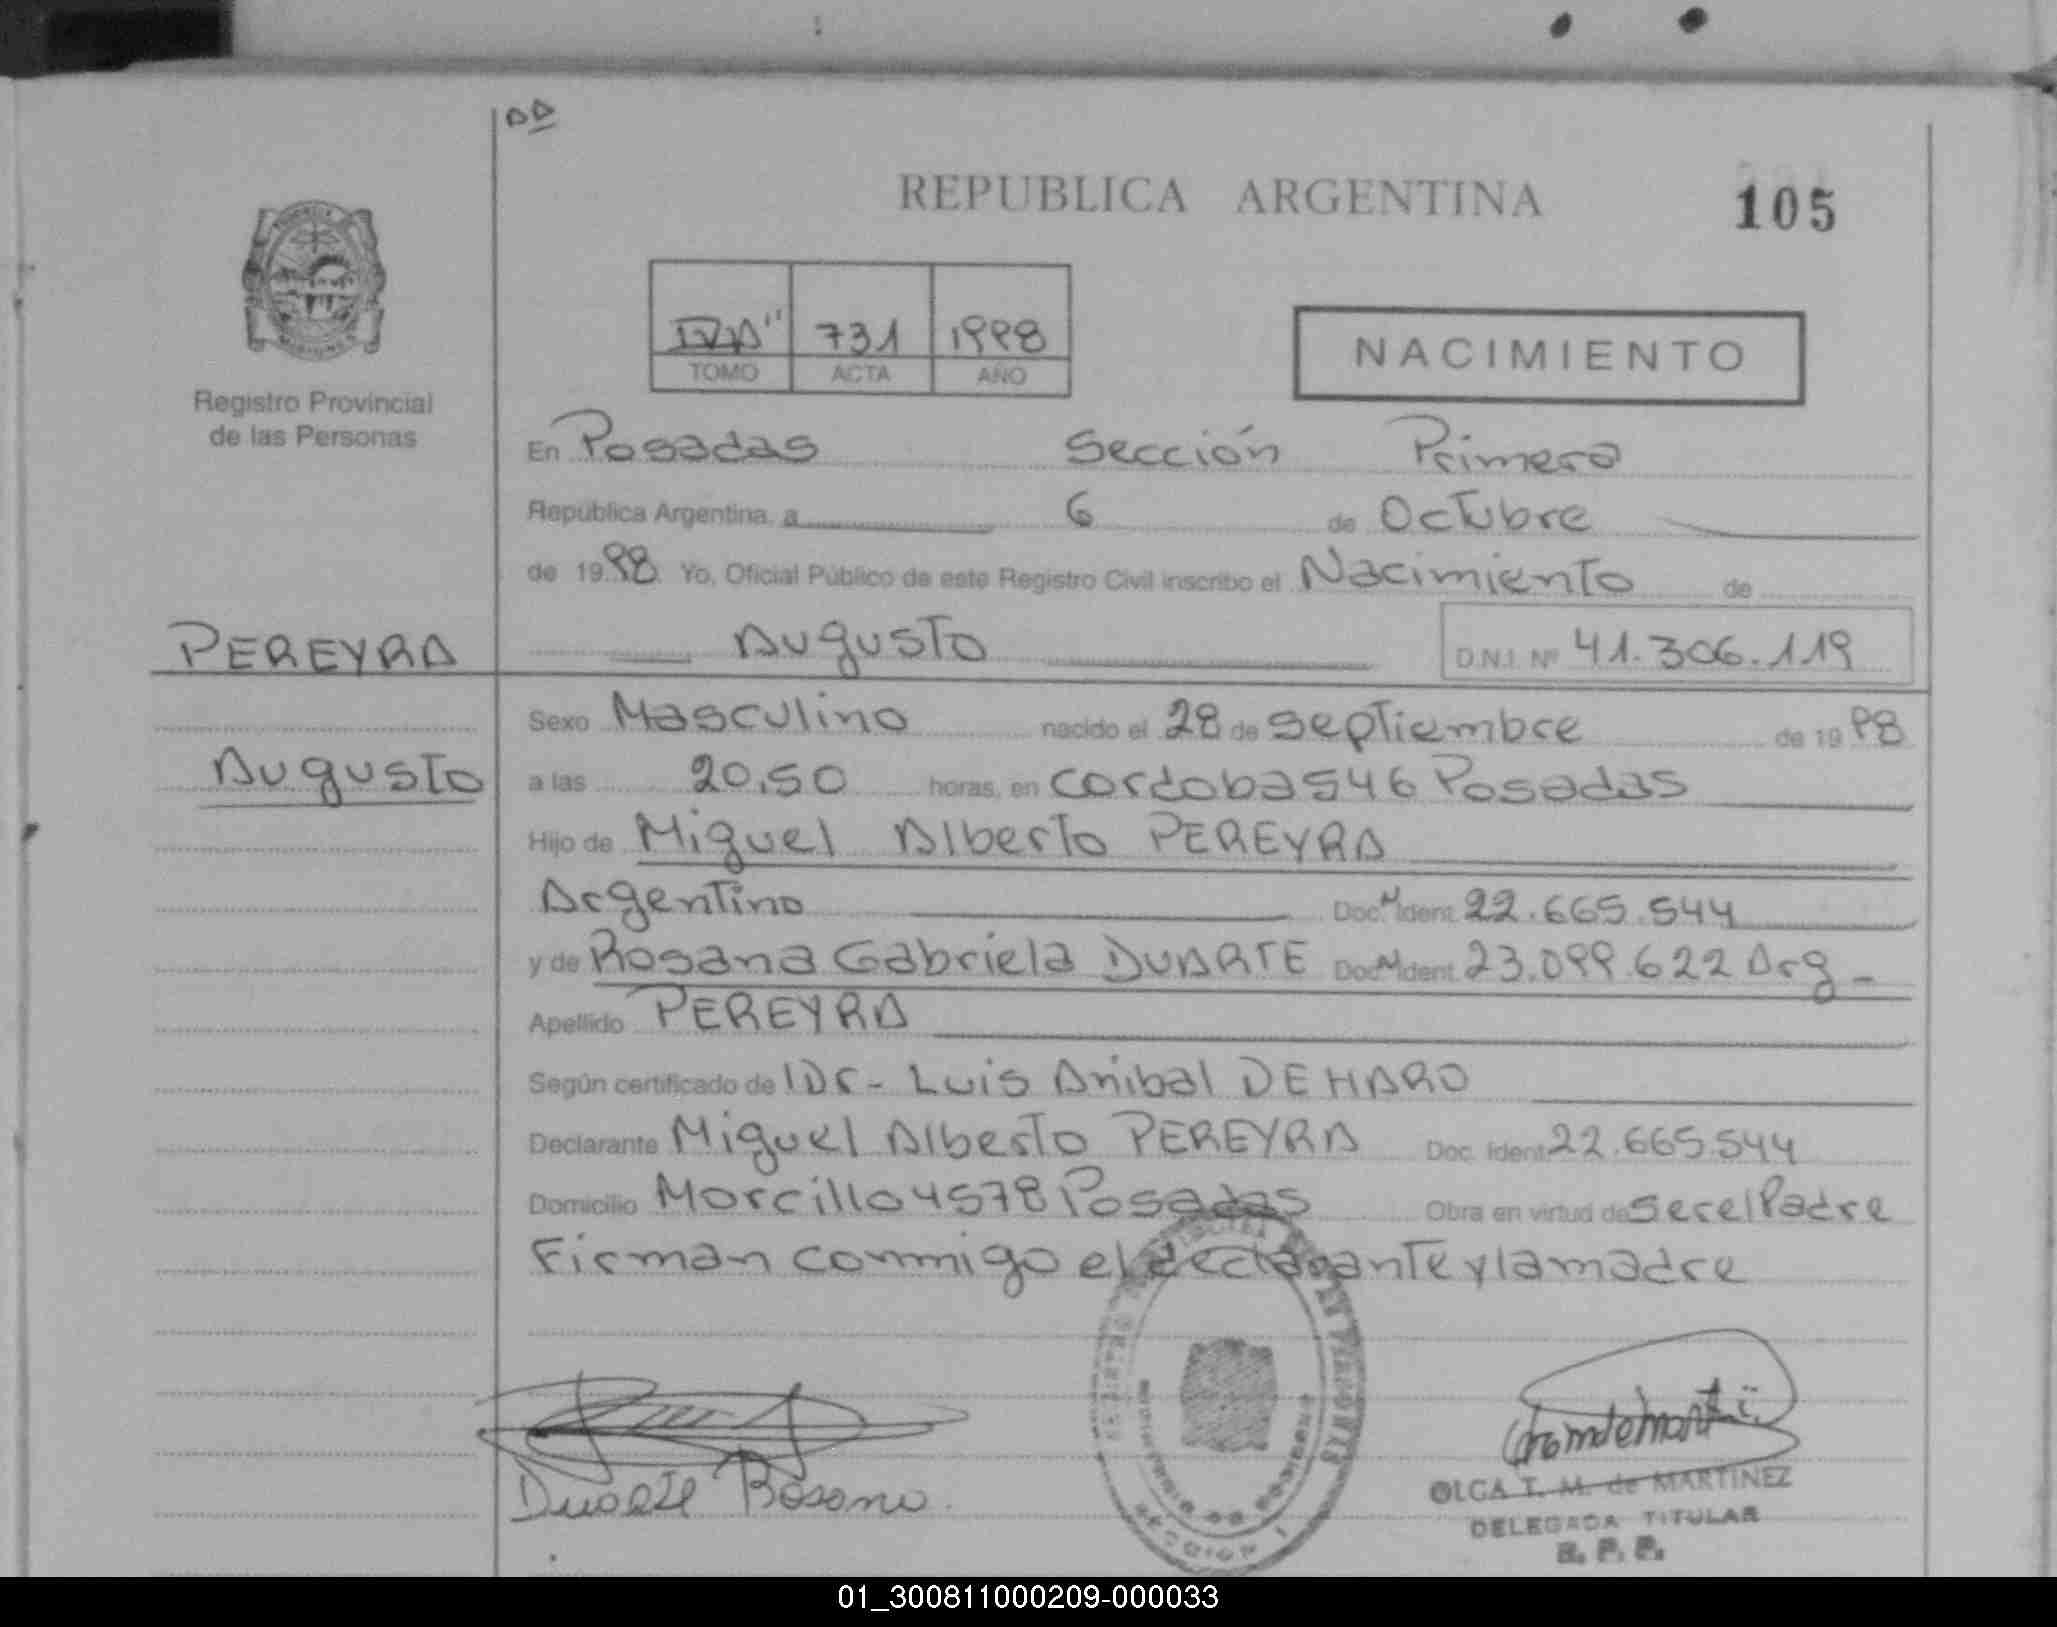 REPUBLICA ARGENTINA
105
731 1998
TOMO ACTA AÑO
NACIMIENTO
Registro Provincial
de las Personas
En Posadas Sección Primera
República Argentina, a 6 de Octubre
de 1998 Yo, Oficial Público de este Registro Civil inscribo el Nacimiento de
PEREYRA
Augusto D.N.I. Nº 41.306.119
Sexo Masculino nacido el 28 de septiembre de 1998
Augusto
a las 20,50 horas, en cordoba 546 Posadas
Hijo de Miguel Alberto PEREYRA
Argentino Doc. Ident. 22.665.544
y de Rosana Gabriela DUARTE Doc. Ident. 23.099.622 Arg-
Apellido PEREYRA
Según certificado de Dr- Luis Anibal DE HARO
Declarante Miguel Alberto PEREYRA Doc. Ident. 22.665.544
Domicilio Morcillo 4578 Posadas Obra en virtud de ser el Padre
Firman conmigo el declarante y la madre
Duarte Rosana
OLGA T. M. de MARTINEZ
DELEGADA TITULAR
R. P. P.
SECCION 1
01_300811000209-000033